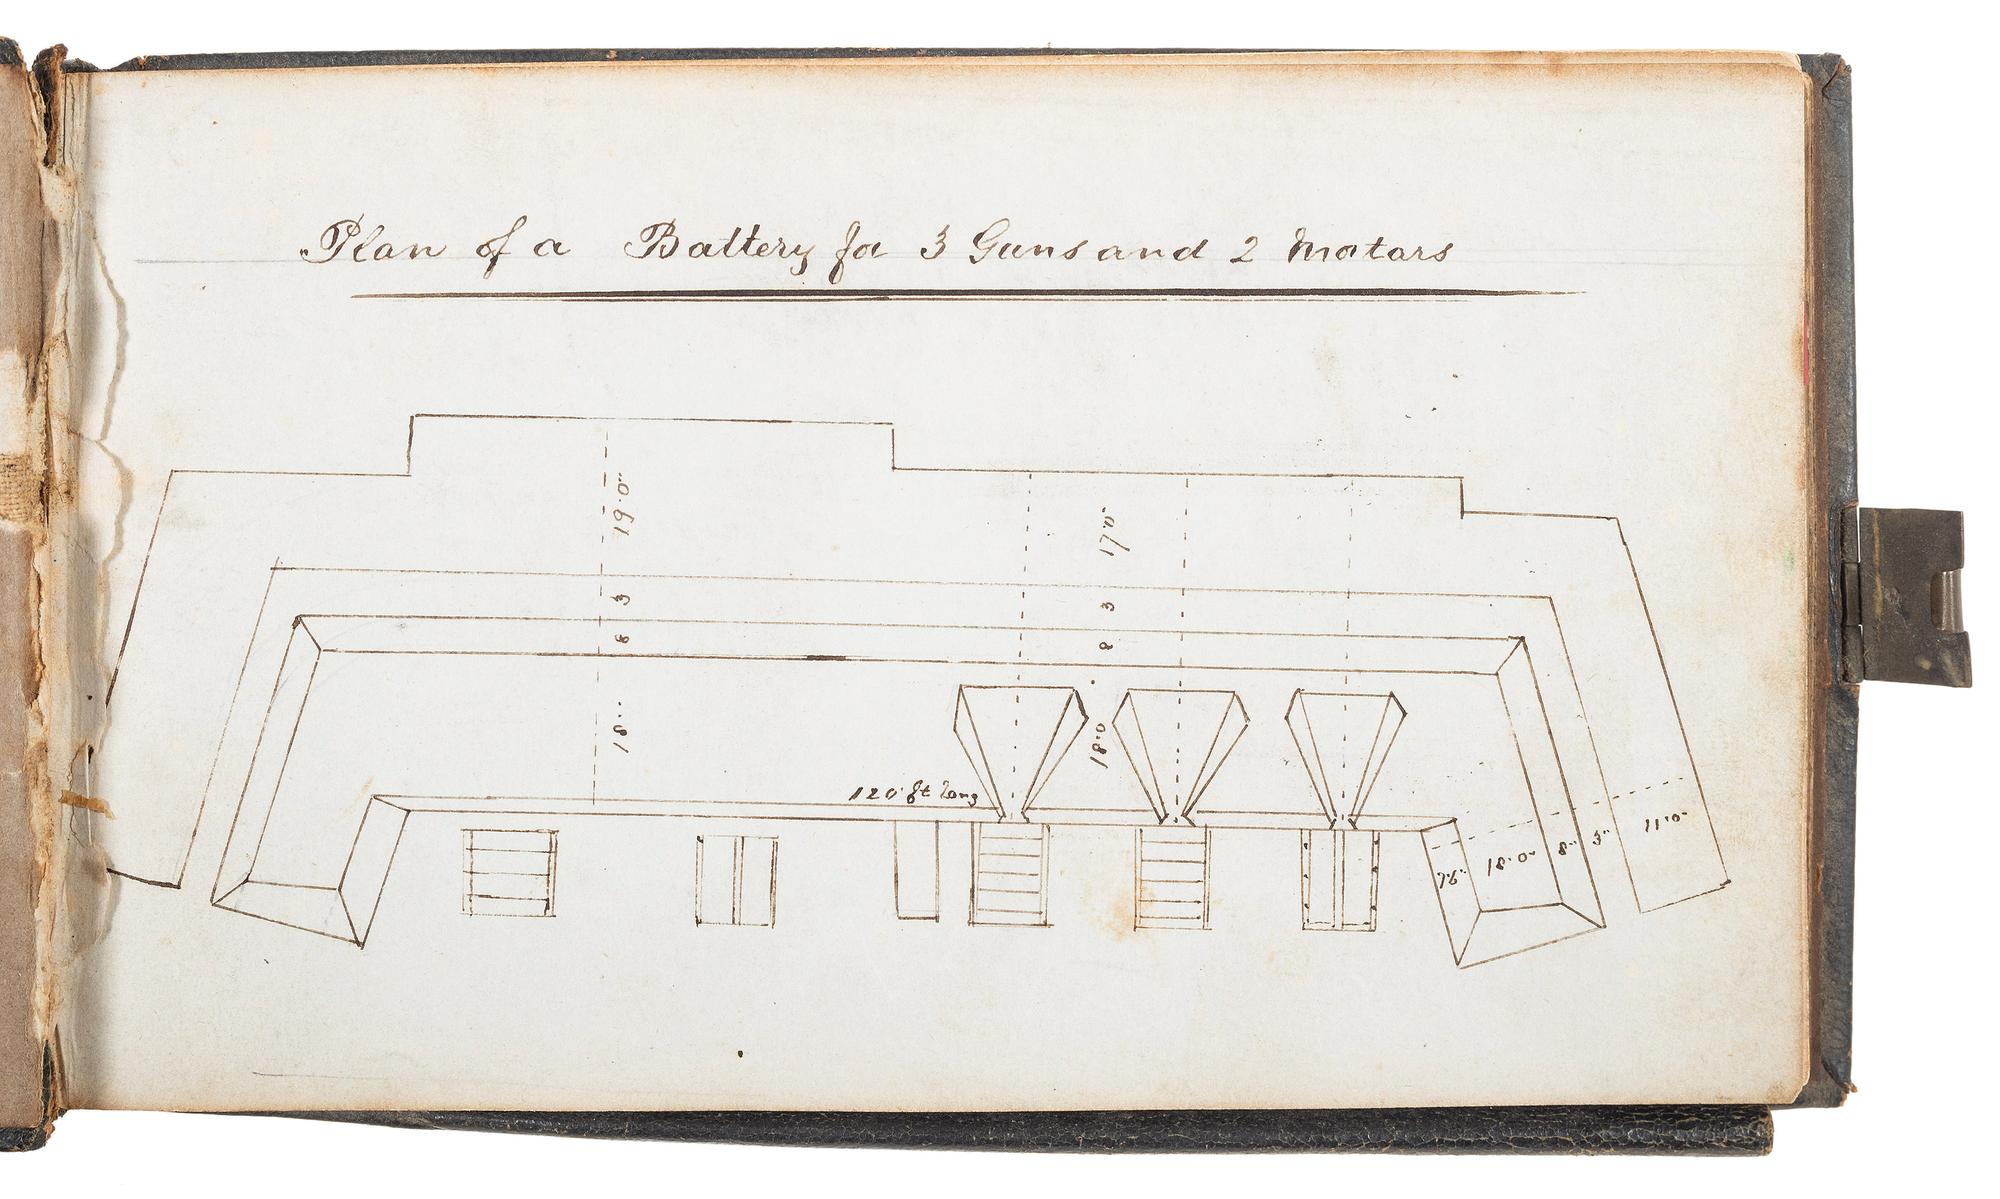 Plan of a Battery for 3 Guns and 2 Motars
19'0"
17'0"
3
3
8
8
18"
18'0"
120 ft long
18'0"
8"
3"
11'0"